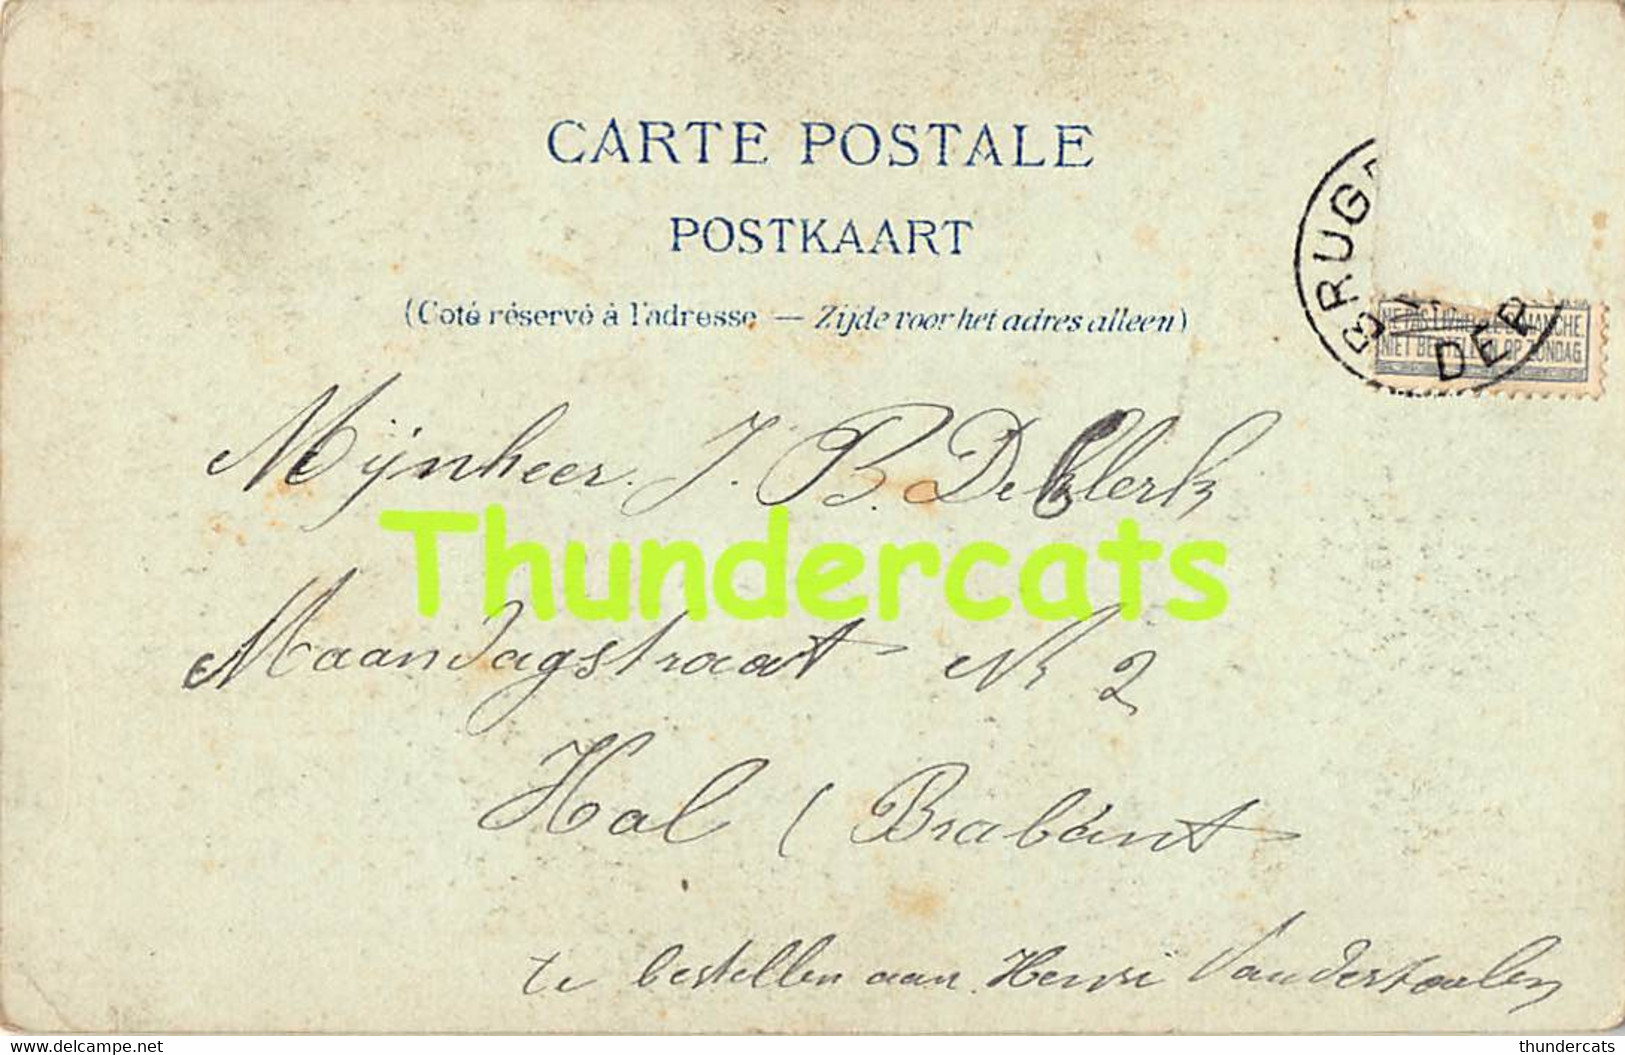 CARTE POSTALE
POSTKAART
(Coté réservé à l'adresse — Zijde voor het adres alleen)
BRUG
DEP
NIET BESTELLEN OP ZONDAG
Mijnheer J. B. De Klerk
Thundercats
Maandagstraat Nr 2
Hal (Brabant
te bestellen aan Henri
delcampe.net
thundercats